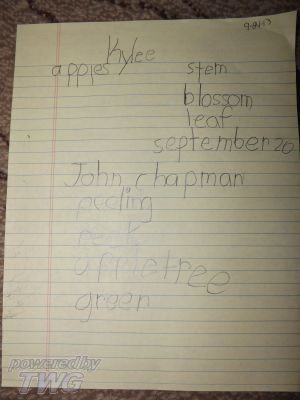 9-24-13
Kylee
apples stem
blossom
leaf
september 20
John chapman
peeling
appletree
green
powered by
TWG